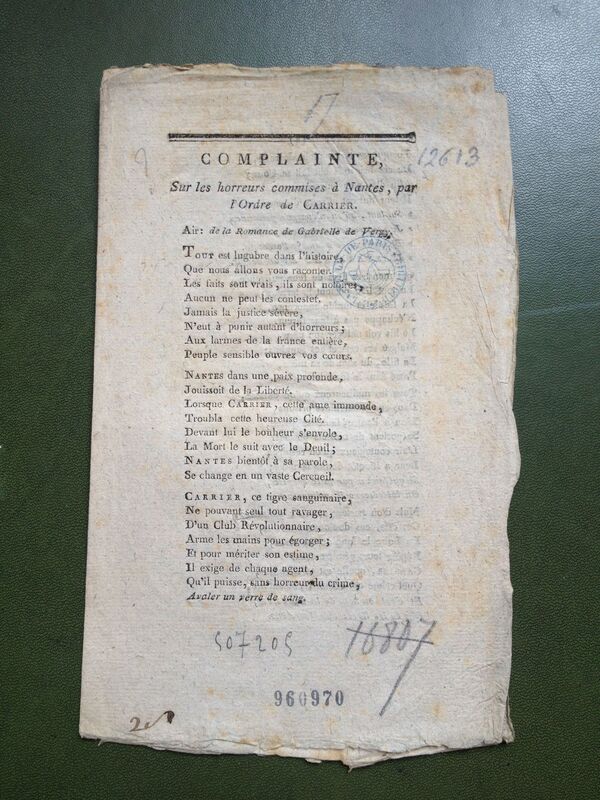 17
12613
COMPLAINTE,
Sur les horreurs commises à Nantes, par
l'Ordre de CARRIER.
Air: de la Romance de Gabrielle de Vergy.
TOUT est lugubre dans l'histoire,
Que nous allons vous raconter.
Les faits sont vrais, ils sont notoires,
Aucun ne peut les contester.
Jamais la justice sévère,
N'eut à punir autant d'horreurs;
Aux larmes de la france entière,
Peuple sensible ouvrez vos cœurs.
NANTES dans une paix profonde,
Jouissoit de la Liberté.
Lorsque CARRIER, cette ame immonde,
Troubla cette heureuse Cité.
Devant lui le bonheur s'envole,
La Mort le suit avec le Deuil;
NANTES bientôt à sa parole,
Se change en un vaste Cercueil.
CARRIER, ce tigre sanguinaire,
Ne pouvant seul tout ravager,
D'un Club Révolutionnaire,
Arme les mains pour égorger;
Et pour mériter son estime,
Il exige de chaque agent,
Qu'il puisse, sans horreur du crime,
Avaler un verre de sang.
507205
16807
960970